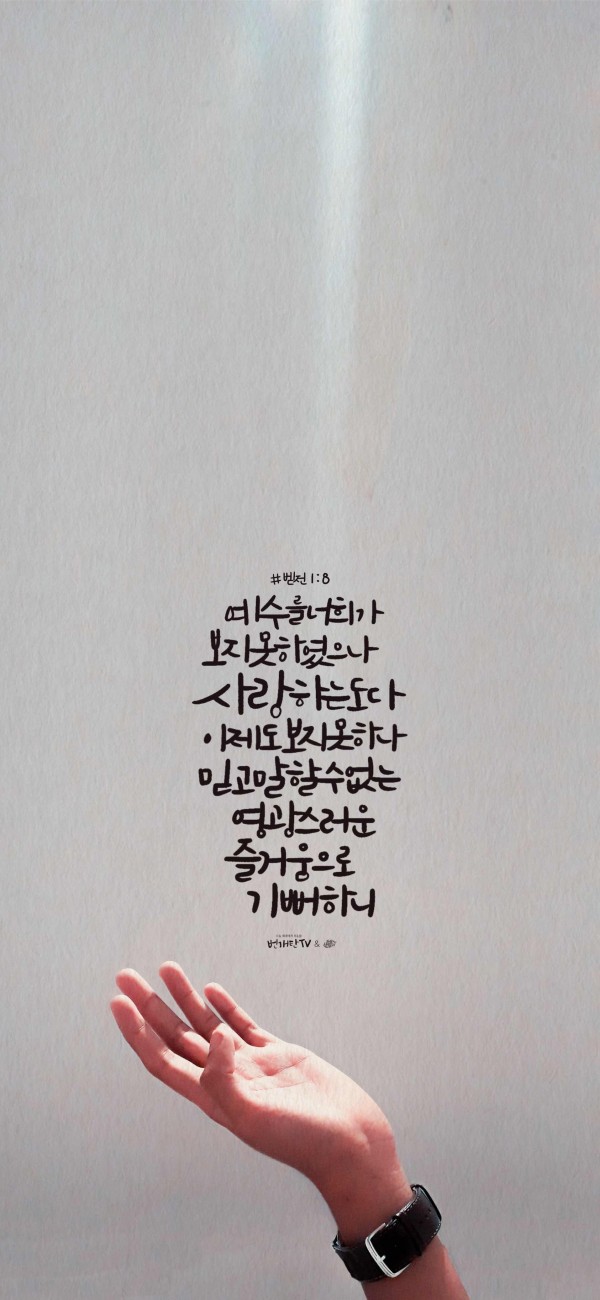 #벧전 1:8
예수를너희가
보지못하였으나
사랑하는도다
이제도보지못하나
믿고말할수없는
영광스러운
즐거움으로
기뻐하니
번개탄TV &